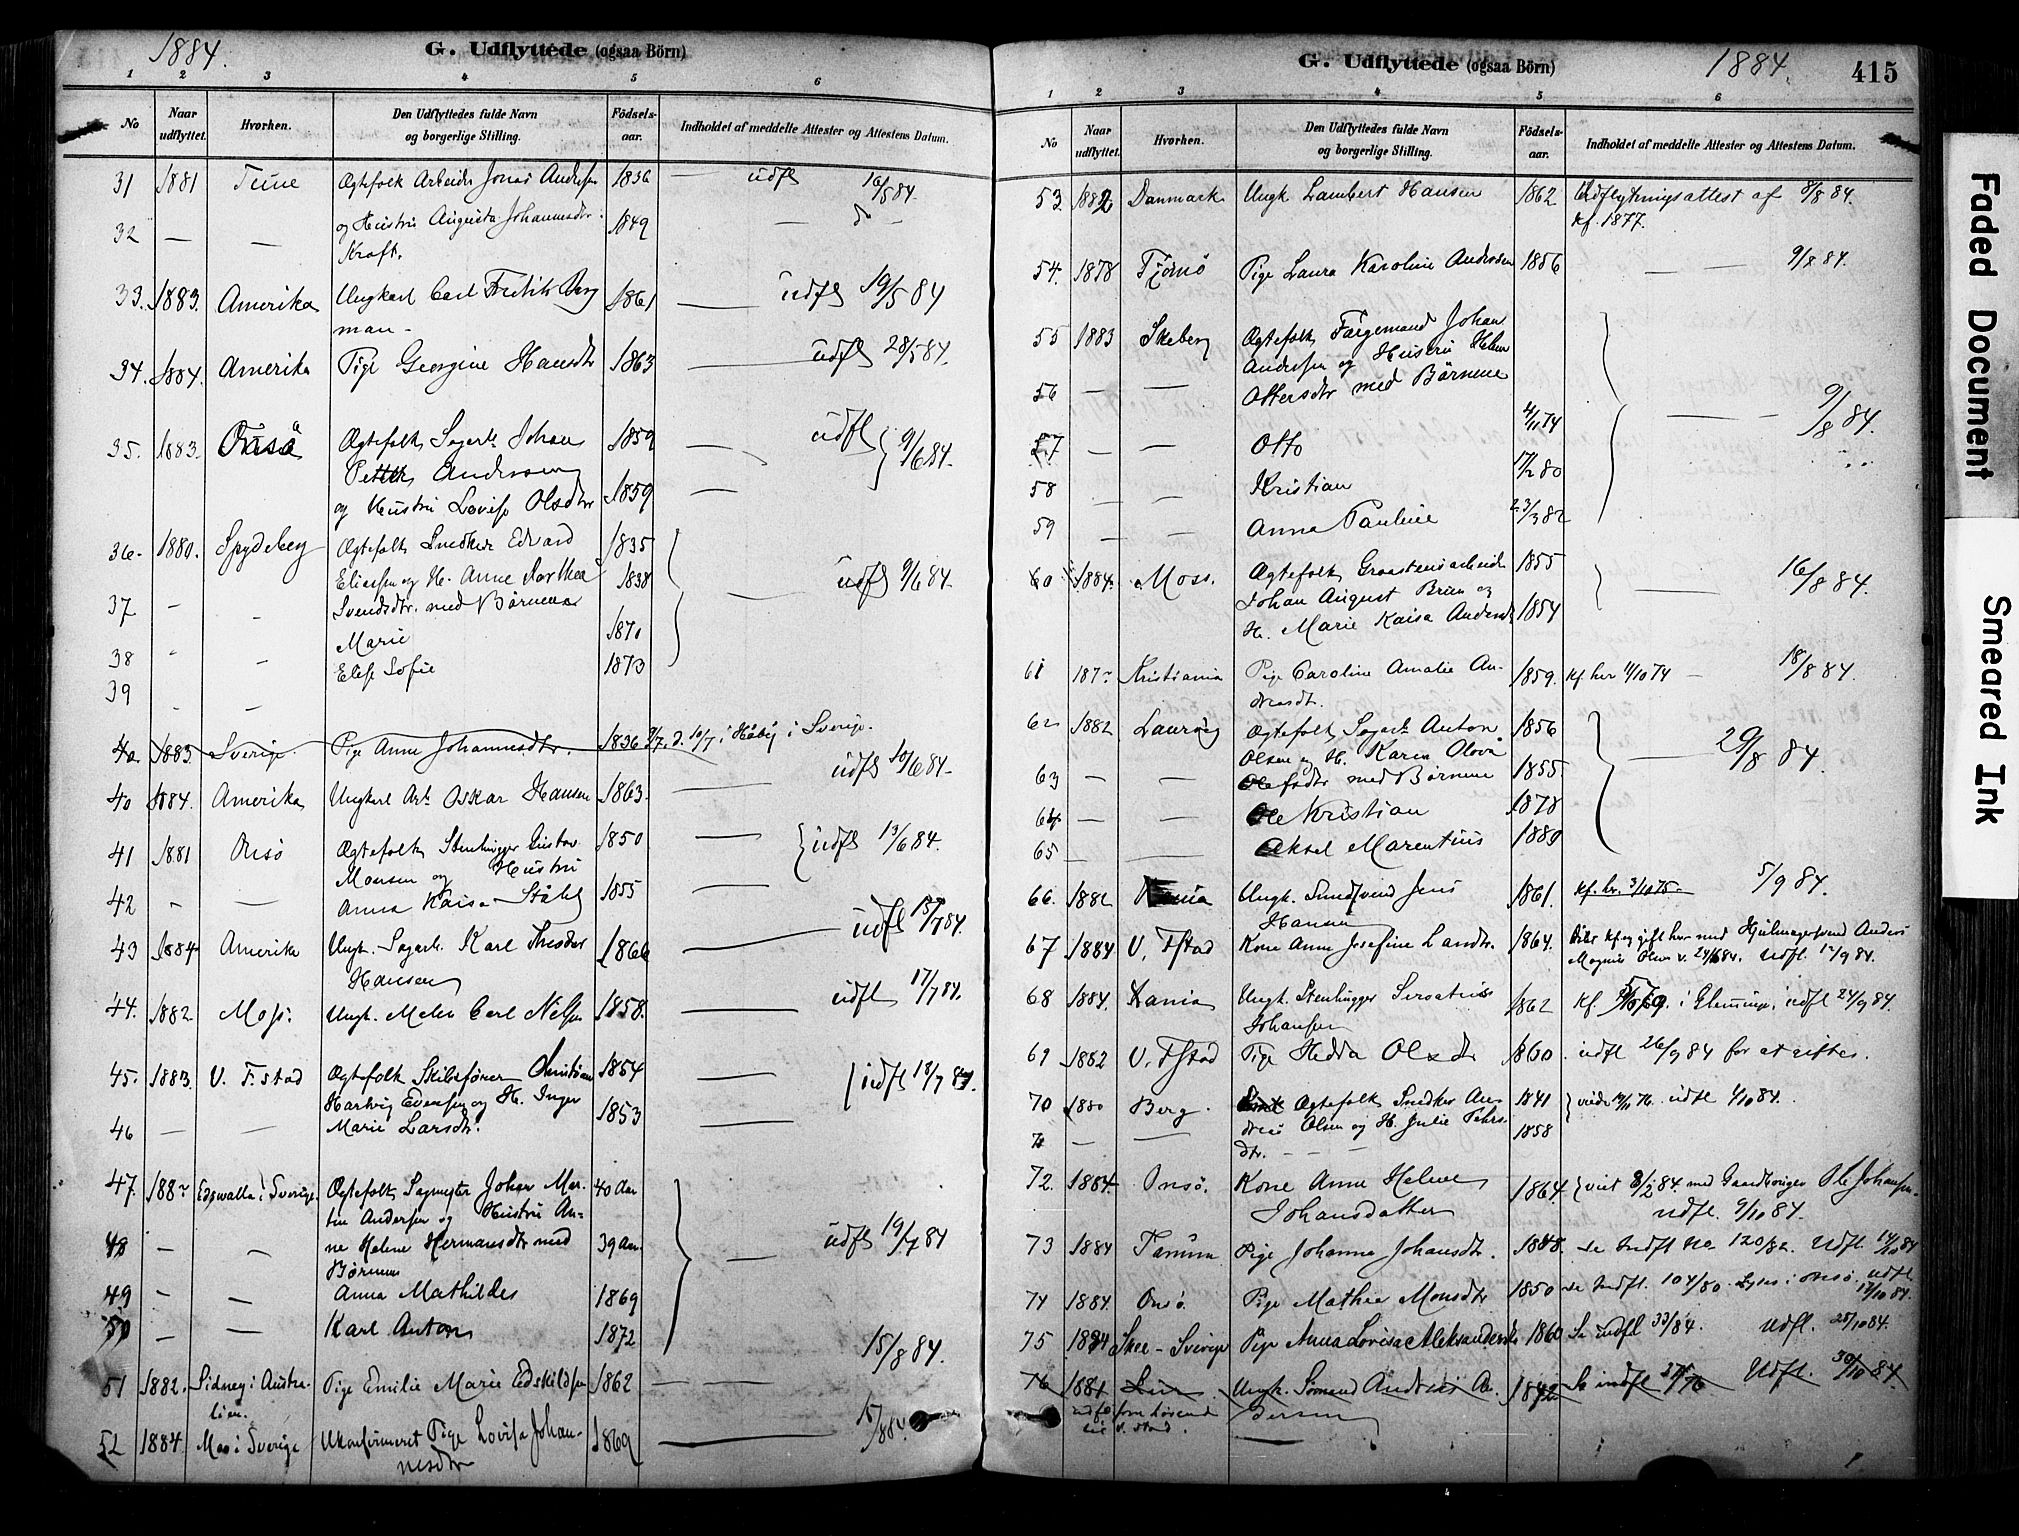 1884.
G. Udflyttede (ogsaa Börn)
1 2 3 4 5 6
No Naar udflyttet. Hvorhen. Den Udflyttedes fulde Navn og borgerlige Stilling. Födsels-aar. Indholdet af meddelte Attester og Attestens Datum.
31 1881 Tune Ægtefolk Arbeider Jonas Andersen 1836 — udfl 16/5 84.
32 — — og Hustru Augusta Johannesdtr. 1849 — do —
Kraft.
33. 1883. Amerika Ungkarl Carl Fredrik Berg 1861 — udfl 19/5 84
man -
34. 1884. Amerika Pige Georgine Hansdtr 1863 — udfl 28/5 84.
35. 1883. Onsø Ægtefolk Sagarb. Johan 1859 — udfl 9/6 84.
Petter Anderson
og Hustru Lovise Olsdtr 1859 —
36. 1880. Spydeberg Ægtefolk Snedker Edvard 1835
Eliassen og H. Anne Dorthea 1838 — udfl 9/6 84.
37 - - Svendsdtr. med Børnene
Marie 1870
38 - - Elise Sofie 1873
39 - -
40 1883. Sverige. Pige Anne Johannesdtr. 1836 i Sverige.
40 1884. Amerika Ungkarl Arb. Oskar Hansen 1863. — udfl 10/6 84.
41 1881 Onsø Ægtefolk Stenhugger Gustav 1850 — udfl 13/6 84.
Monsen og Hustru
42 - — Anna Kaisa Ståhl 1855 —
43 1884 Amerika Ungk. Sagarb. Karl 1866 — udfl 15/7 84.
Hansen
44. 1882 Moss. Ungk. Maler Carl Nelsen 1858. — udfl 17/7 84.
45. 1883. V. F.stad Ægtefolk Skibsfører Christian 1854 — udfl 18/7 84.
Hartvig Evensen og H. Inger
46 — — Marie Larsdtr. 1853 —
47. 188- Edsvalla i Sverige. Ægtefolk Sagmester Johan Mar- 40 Aar
tin Andersen og Hustru An-
48 - - ne Helene Hermansdtr med 39 Aar. — udfl 19/7 84
Børnene
49 - - Anna Mathilde 1869
50 - — Karl Anton 1872
51 1882. Sidney i Austra- Pige Emilie Marie Edskildsen 1862 — — 15/8 84.
lien.
52 1884. Mo i Sverige Ukonfirmeret Pige Lovise Johan- 1869 — 15/8 84.
nesdtr
G. Udflyttede (ogsaa Börn)
1884.
415
1 2 3 4 5 6
No Naar udflyttet. Hvorhen. Den Udflyttedes fulde Navn og borgerlige Stilling. Födsels-aar. Indholdet af meddelte Attester og Attestens Datum.
53. 1882 Danmark Ungk. Lambert Hansen 1862 Udflytningsattest af 8/8 84.
kf. 1877.
54. 1878 Tjømø Pige Laura Karoline Andersen 1856 — — 9/8 84.
55 1883 Skeberg Ægtefolk Færgemand Johan
Andersen og Hustru Helene
56 — — Ottersdtr med Børnene
57 — — Otto 4/11 74 — - 9/8 84.
58 — — Kristian 17/2 80
59 — — Anna Pauline 23/3 82
60 1884. Moss. Ægtefolk Graastensarbeider 1855 — 16/8 84.
Johan August Brun og
H. Marie Kaisa Andersd. 1854
61 187- Kristiania Pige Caroline Amalie An- 1859. kf. her 1/10 74 — 18/8 84.
dreasdt.
62 1882 Laurvig Ægtefolk Sagarb. Anton 1856 — 29/8 84.
Olsen og H. Karen Olava
63 — — Olefsdtr med Børnene 1855
64 — — Ole Kristian 1878
65 — — Aksel Marentius 1880
66. 1882 Kania Ungk. Smedsvend Jens 1861. kf. her 3/10 75 - 5/9 84.
Hansen
67 1884 V. Fstad Kone Anne Josefine 1864. kf. og gift her med Hjulmagersvend Anders
Magnus Olsen Udfl. 17/9 84.
68 1884. Kania Ungk. Stenhugger 1862 kf i Glemminge, udfl 24/9 84.
Johansen
69 1882 V. Fstad Pige Hedda Olsdtr 1860 . udfl 26/9 84 for at giftes.
70 1880 Berg. Ægtefolk Snedker An- 1841 viede 76. udfl 4/10 84.
71 — — dreas Olsen og H. Julie Pehrs- 1858
dtr. - - - -
72. 1884. Onsø. Kone Anne Helene 1864. viet 8/2 84. med Gaardbruger Ole Johansen
Johansdatter udfl. 9/10 84.
73 1884 Tanum Pige Johanne Johansdtr. 1848. se Indfl No 120/82. Udfl. 14/10 84
74 1884. Onsø. Pige Mathea Monsdtr 1850 se Indfl. 104/80. i Onsø. udfl 17/10 84.
75 1884 Skee - Sverige Pige Anna Lovisa Aleksandersd. 1860 Se indfl 33/84. Udfl. 28/10 84.
76 1881 Lier Ungk. Sømand Andreas An- 1842 Se indfl 37/76 Udfl. 30/10 84.
dersen
Faded Document
Smeared Ink